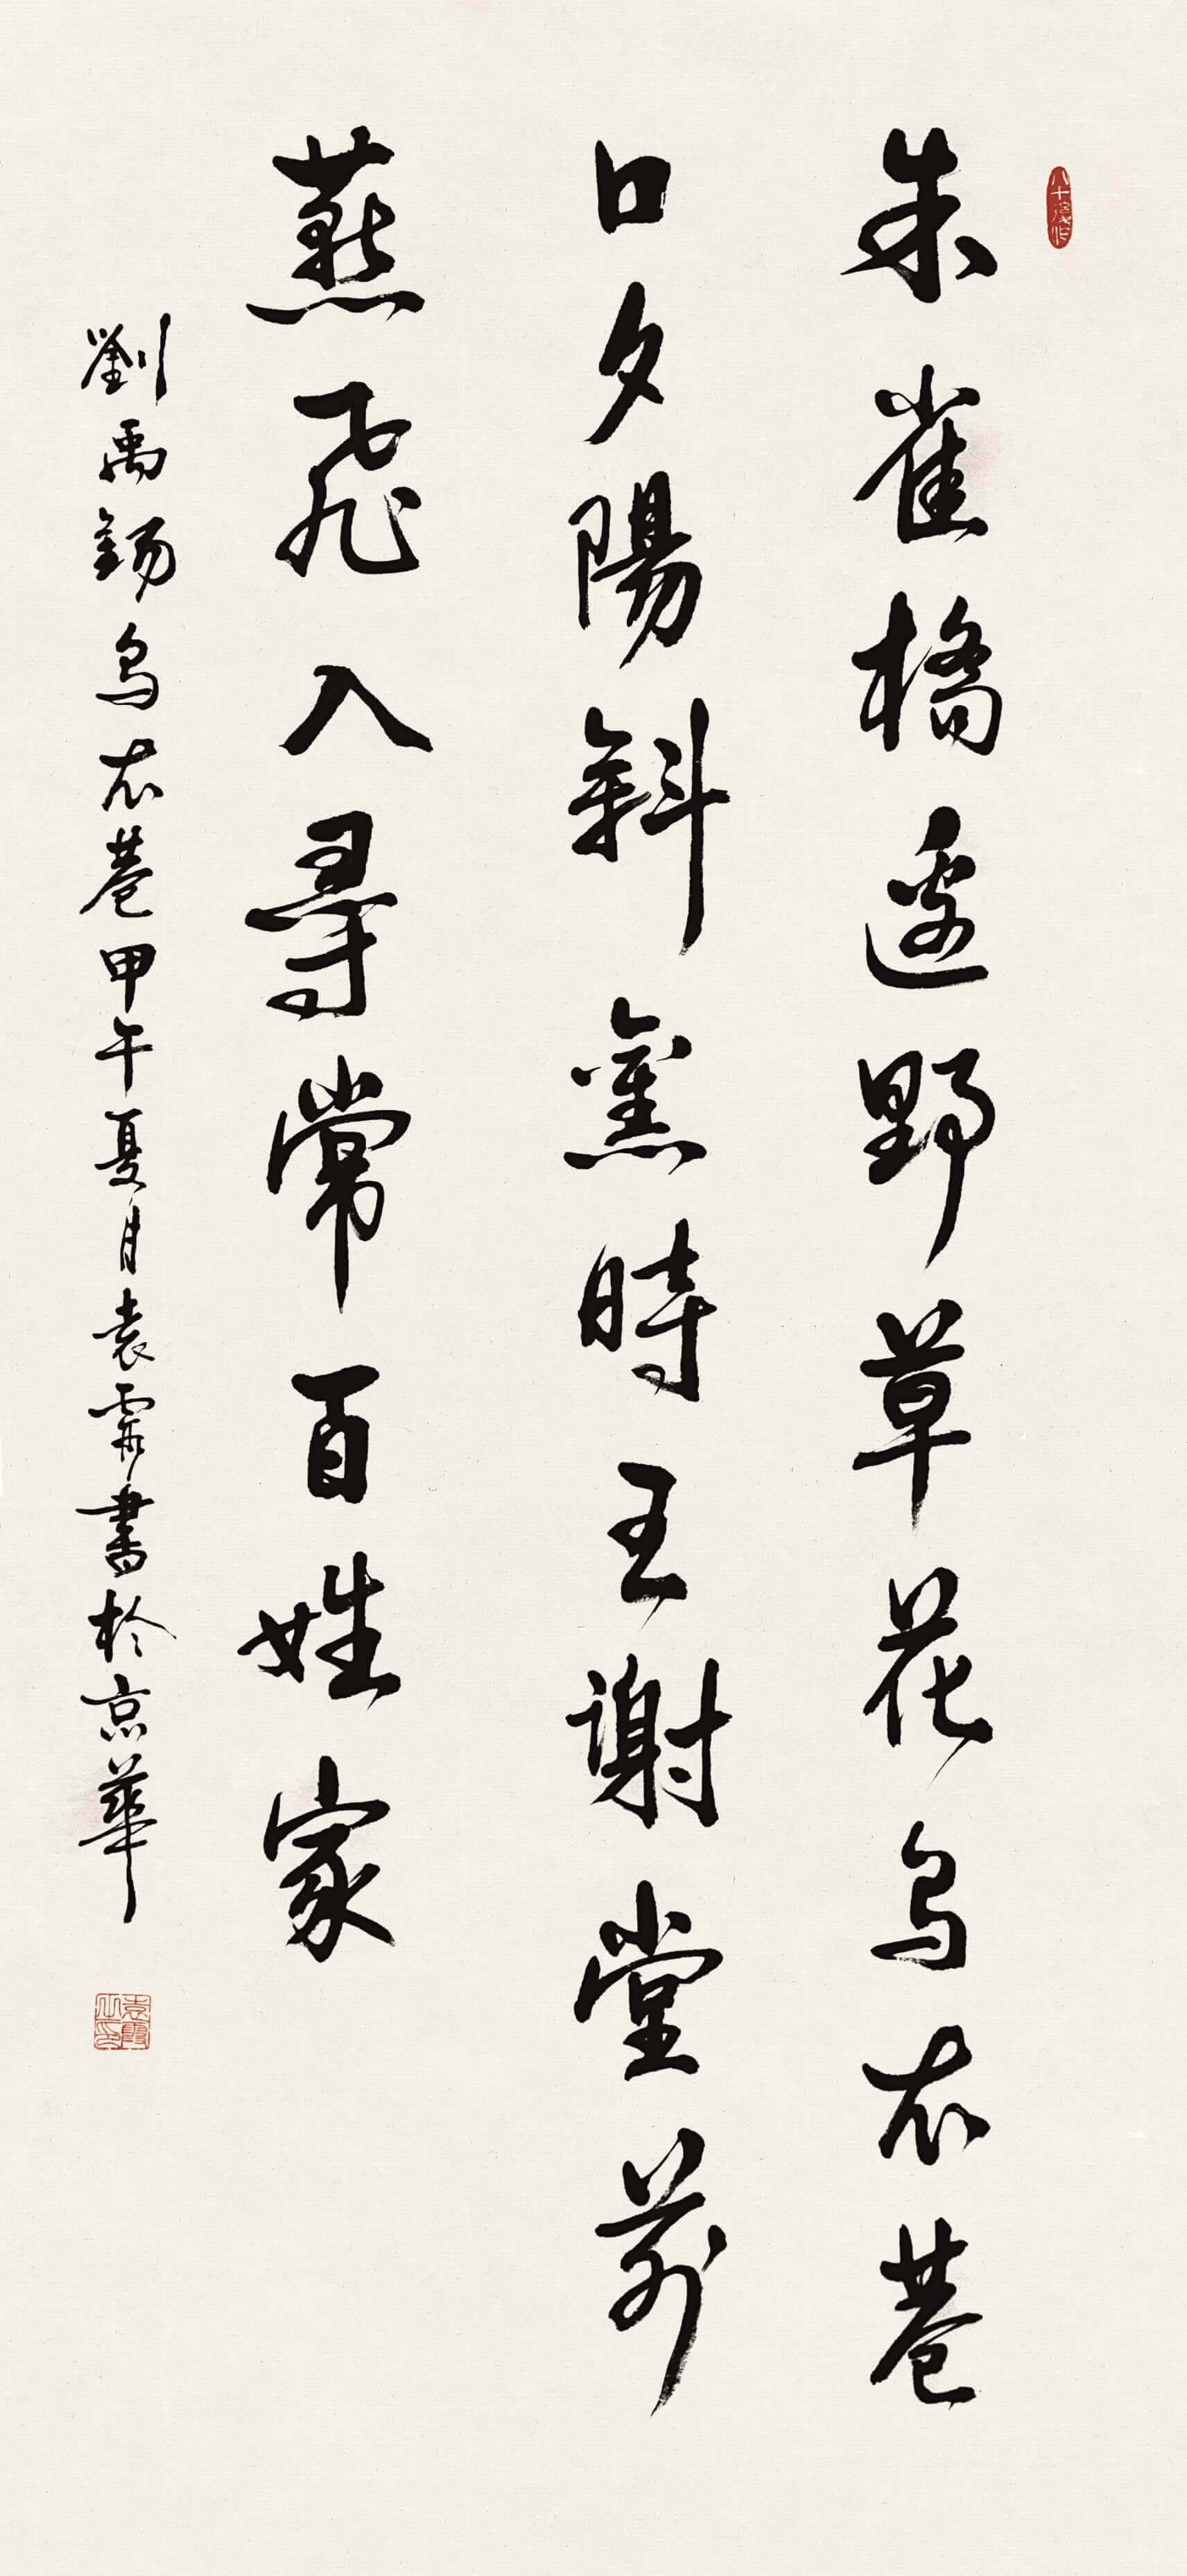 八十後作
朱雀橋邊野草花烏衣巷
口夕陽斜舊時王謝堂前
燕飛入尋常百姓家
劉禹錫烏衣巷甲午夏月袁霞書於京華
袁霞之印